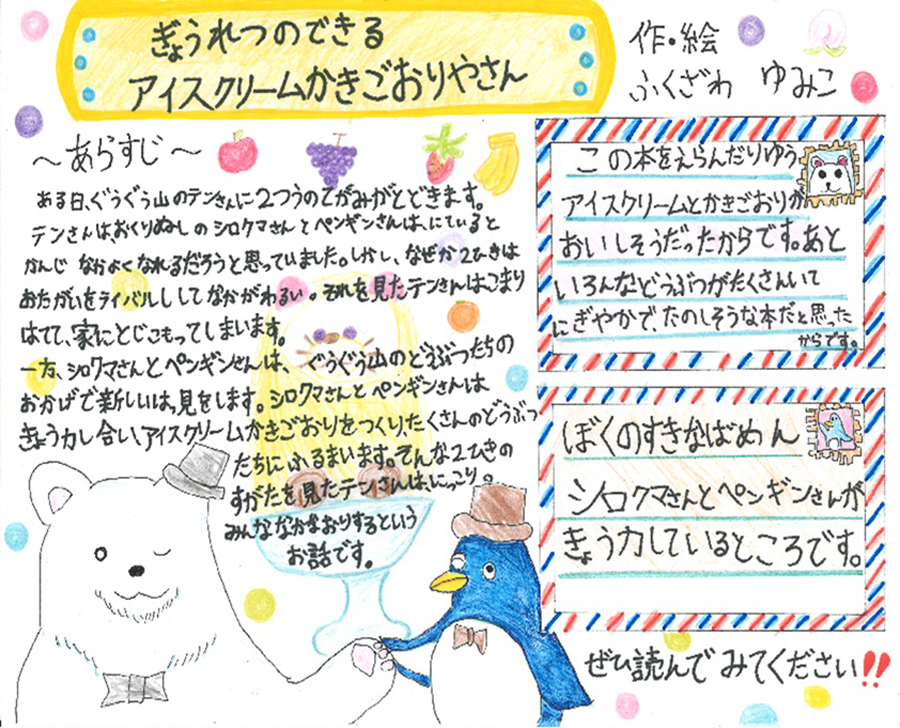 ぎょうれつのできる
アイスクリームかきごおりやさん
作・絵
ふくざわ ゆみこ
～あらすじ～
ある日、ぐうぐう山のテンさんに2つうのてがみがとどきます。
テンさんは、おくりぬしのシロクマさんとペンギンさんは、にていると
かんじ なかよくなれるだろうと思っていました。しかし、なぜか2ひきは
おたがいをライバルししてなかがわるい。それを見たテンさんはこまり
はてて、家にとじこもってしまいます。
一方、シロクマさんとペンギンさんは、ぐうぐう山のどうぶつたちの
おかげで新しいはっ見をします。シロクマさんとペンギンさんは
きょう力し合い、アイスクリームかきごおりをつくり、たくさんのどうぶつ
たちにふるまいます。そんな2ひきの
すがたを見たテンさんは、にっこり。
みんななかなおりするという
お話です。
この本をえらんだりゆう
アイスクリームとかきごおりが
おいしそうだったからです。あと
いろんなどうぶつがたくさんいて
にぎやかで、たのしそうな本だと思った
からです。
ぼくのすきなばめん
シロクマさんとペンギンさんが
きょう力しているところです。
ぜひ読んでみてください!!